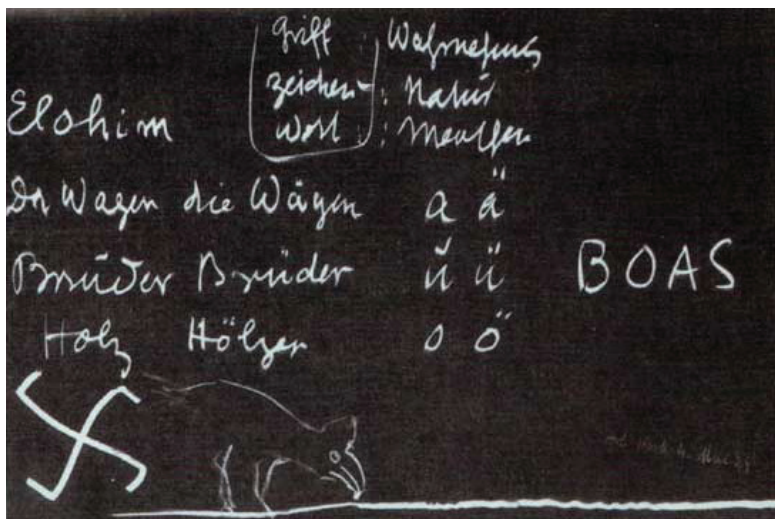 Griff : Wahrnehmung
Zeichen : Natur
Elohim
Wort : Menschen
Der Wagen die Wägen a ä
Brŭder Brüder ŭ ü BOAS
Holz Hölzer o ö